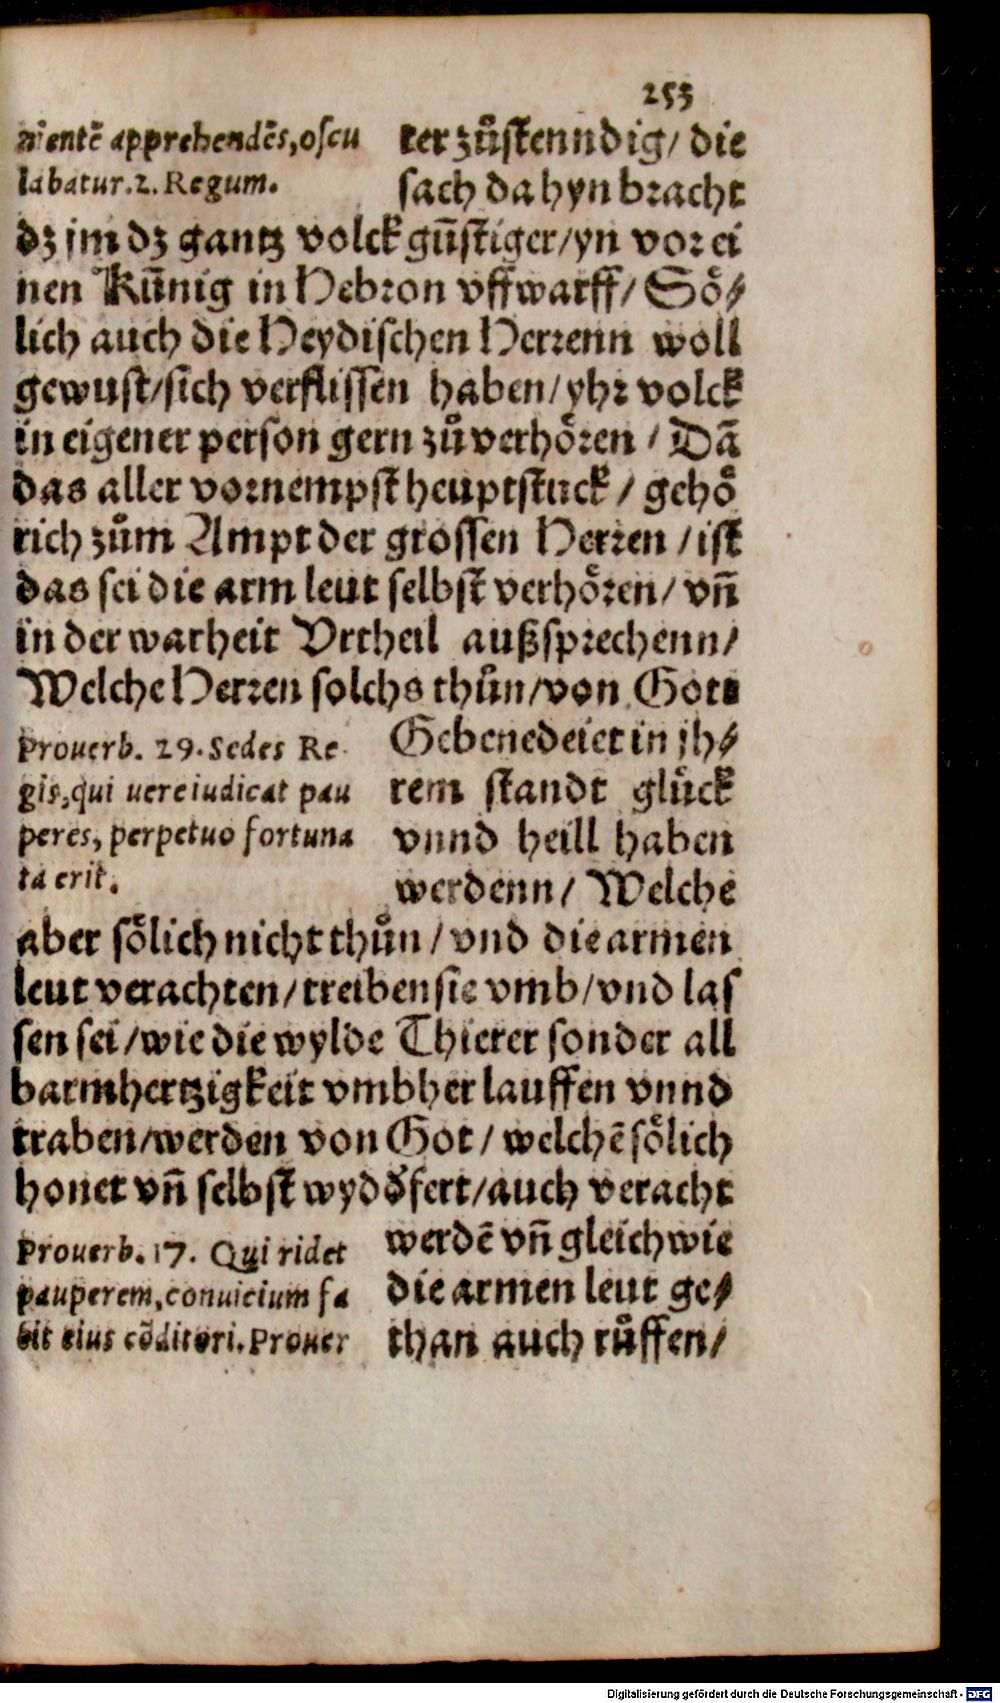 253
nientē apprehendēs, oscu
labatur. 2. Regum.
ter zůstenndig / die
sach da hyn bracht
dz jm dz gantz volck gu̅stiger / yn vor ei
nen Ku̅nig in Hebron vffwarff / Soͤ⸗
lich auch die Heydischen Herrenn woll
gewust / sich verflissen haben / yhr volck
in eigener person gern zů verhoͤren / Dā
das aller vornempst heuptstuck / gehoͤ
rich zům Ampt der grossen Herren / ist
das sei die arm leut selbst verhoͤren / vn̄
in der warheit Vrtheil außsprechenn /
Welche Herren solchs thůn / von Gots
Prouerb. 29. Sedes Re
gis, qui uere iudicat pau
peres, perpetuo fortuna
ta erit.
Gebenedeiet in jh⸗
rem standt gluͤck
vnnd heill haben
werdenn / Welche
aber soͤlich nicht thůn / vnd die armen
leut verachten / treiben sie vmb / vnd las
sen sei / wie die wylde Thierer sonder all
barmhertzigkeit vmbher lauffen vnnd
traben / werden von Got / welchē soͤlich
honet vn̄ selbst wydd̕fert / auch veracht
Prouerb. 17. Qui ridet
pauperem, conuicium fa
cit eius cōditori. Prouer
werdē vn̄ gleich wie
die armen leut ge⸗
than auch růffen /
Digitalisierung gefördert durch die Deutsche Forschungsgemeinschaft - DFG